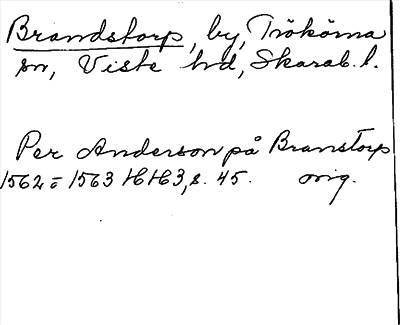 Brandstorp, by, Trökörna
sn, Viste hd, Skarab. l.
Per Anderson på Branstorp
1562 = 1563 HH3, s. 45. orig.